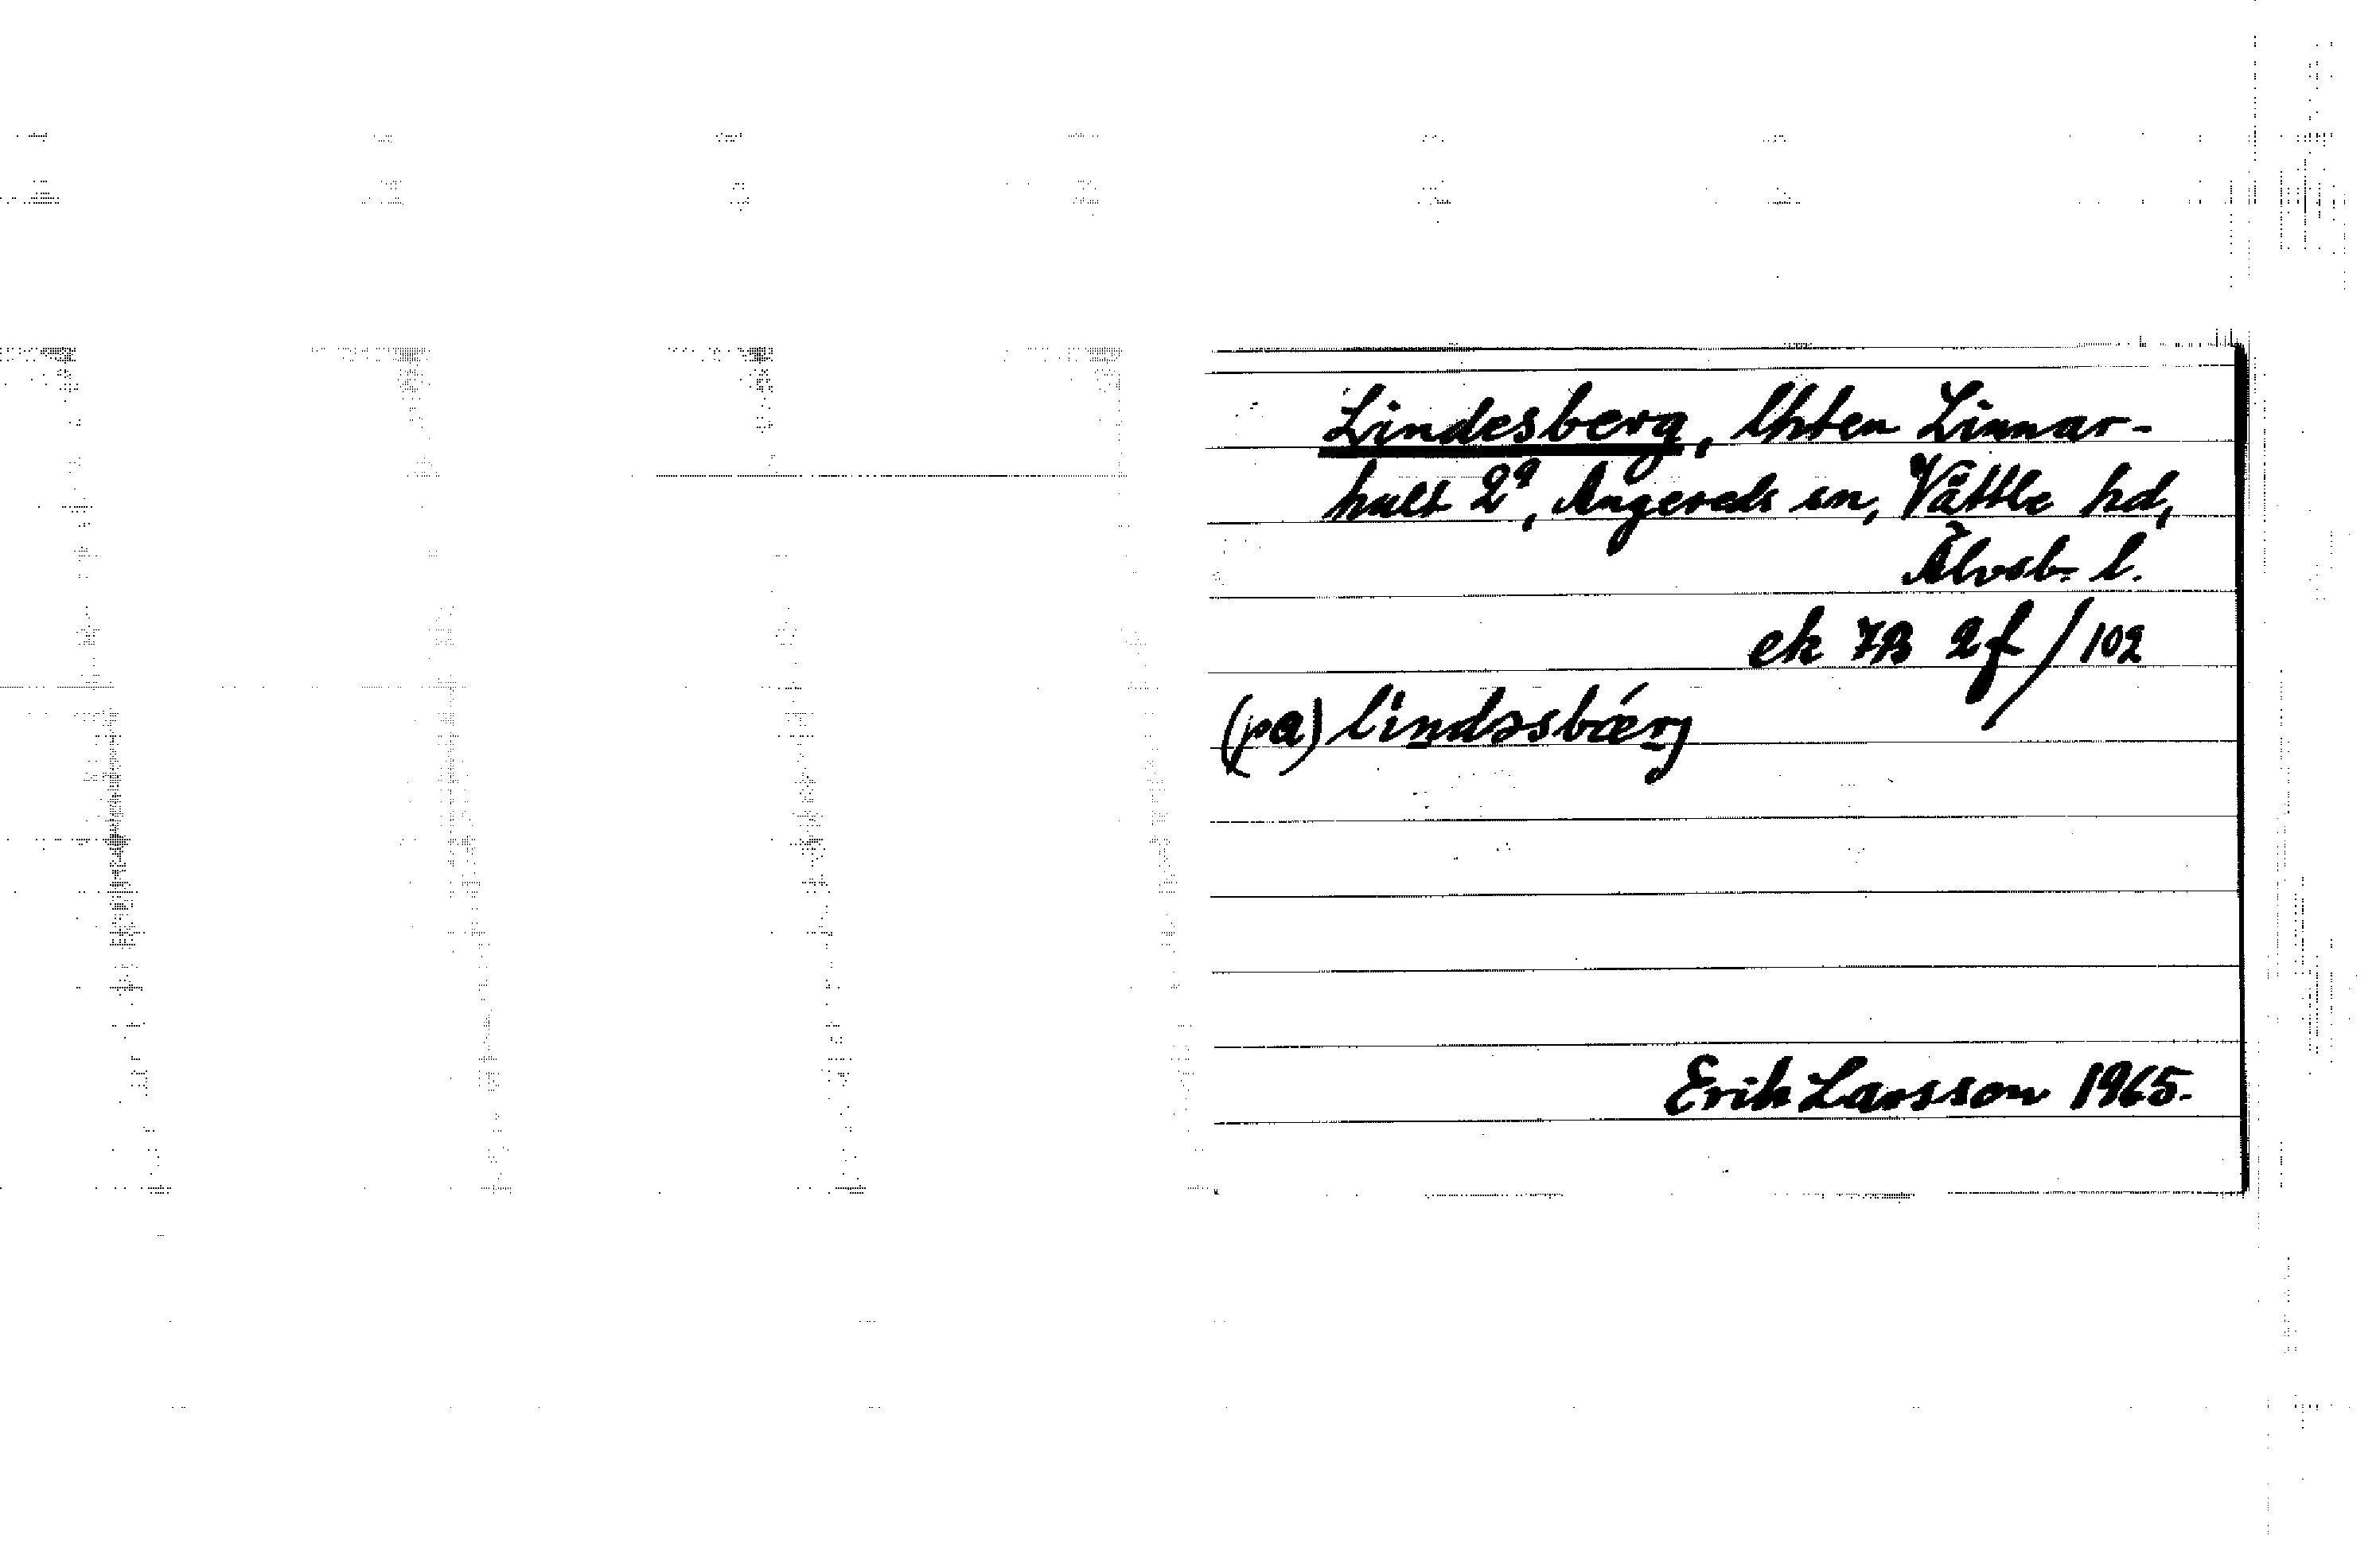 Lindesberg, lhten Linnar-
hult 2⁹, Angereds sn, Vättle hd,
Älvsb. l.
ek 7B 2f/102
(pa) lindəsbærj
Erik Larsson 1965.